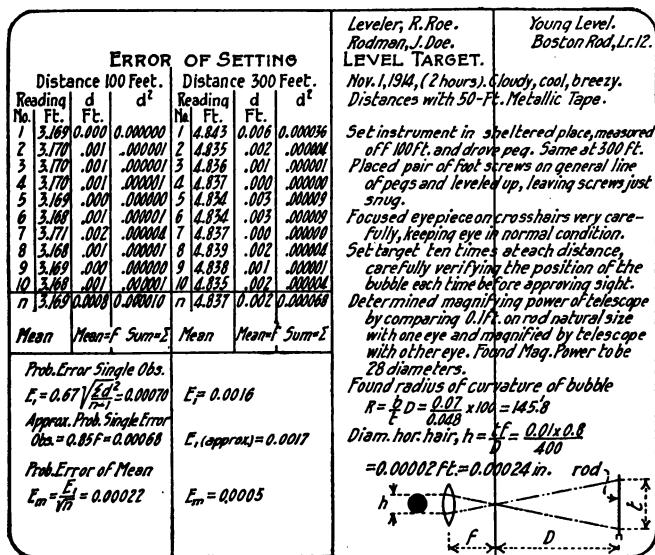 ERROR OF SETTING LEVEL TARGET.
Leveler, R.Roe. Young Level.
Rodman, J.Doe. Boston Rod, Lr.12.
Distance 100 Feet. Distance 300 Feet.
Reading d d² Reading d d²
No. Ft. Ft. No. Ft. Ft.
1 3.169 0.000 0.000000 1 4.843 0.006 0.000036
2 3.170 .001 .000001 2 4.835 .002 .000004
3 3.170 .001 .000001 3 4.836 .001 .000001
4 3.170 .001 .000001 4 4.837 .000 .000000
5 3.169 .000 .000000 5 4.834 .003 .000009
6 3.168 .001 .000001 6 4.834 .003 .000009
7 3.171 .002 .000004 7 4.837 .000 .000000
8 3.168 .001 .000001 8 4.839 .002 .000004
9 3.169 .000 .000000 9 4.838 .001 .000001
10 3.168 .001 .000001 10 4.835 .002 .000004
n 3.169 0.0008 0.000010 n 4.837 0.002 0.000068
Mean Mean=F Sum=Σ Mean Mean=F Sum=Σ
Prob. Error Single Obs.
E₁=0.67√Σd²/n-1=0.00070 E₁=0.0016
Approx. Prob. Single Error
Obs.=0.85F=0.00068 E₁(approx)=0.0017
Prob. Error of Mean
Em=E₁/√n=0.00022 Em=0.0005
Nov.1,1914,(2 hours). Cloudy, cool, breezy.
Distances with 50-Ft. Metallic Tape.
Set instrument in sheltered place, measured
off 100 ft. and drove peg. Same at 300 ft.
Placed pair of foot screws on general line
of pegs and leveled up, leaving screws just
snug.
Focused eyepiece on crosshairs very care-
fully, keeping eye in normal condition.
Set target ten times at each distance,
carefully verifying the position of the
bubble each time before approving sight.
Determined magnifying power of telescope
by comparing 0.1 ft. on rod natural size
with one eye and magnified by telescope
with other eye. Found Mag. Power to be
28 diameters.
Found radius of curvature of bubble
R=b/t D=0.07/0.048 x100=145.'8
Diam. hor. hair, h=tF/D=0.01x0.8/400
=0.00002 ft.=0.00024 in. rod
h t
F D